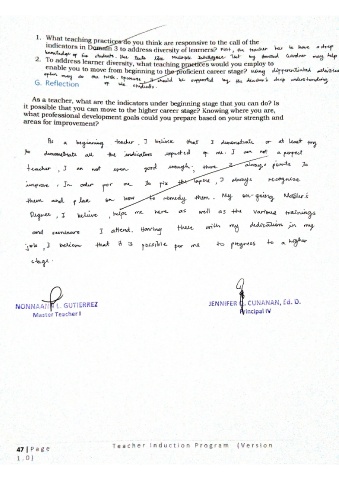 1. What teaching practices do you think are responsive to the call of the
indicators in Domain 3 to address diversity of learners? First, the teacher has to have a deep
knowledge of his students. The tests like multiple intelligence test by Howard Gardner may help
2. To address learner diversity, what teaching practices would you employ to
enable you to move from beginning to the proficient career stage? Using differentiated activities
often may do the trick. It should be supported by the teacher's deep understanding
G. Reflection of the students.
As a teacher, what are the indicators under beginning stage that you can do? Is
it possible that you can move to the higher career stage? Knowing where you are,
what professional development goals could you prepare based on your strength and
areas for improvement?
As a beginning teacher, I believe that I demonstrate or at least try
to demonstrate all the indicators expected of me. I am not a perfect
teacher, I am not even good enough, there's always points to
improve. In order for me to fix the lapses, I always recognize
them and plan on how to remedy them. My on-going Master's
Degree, I believe, helps me here as well as the various trainings
and seminars I attend. Having these with my dedication in my
job, I believe that it is possible for me to progress to a higher
stage.
NONNAAN L. GUTIERREZ
Master Teacher I
JENNIFER G. CUNANAN, Ed. D.
Principal IV
47 | Page Teacher Induction Program (Version
1.0)